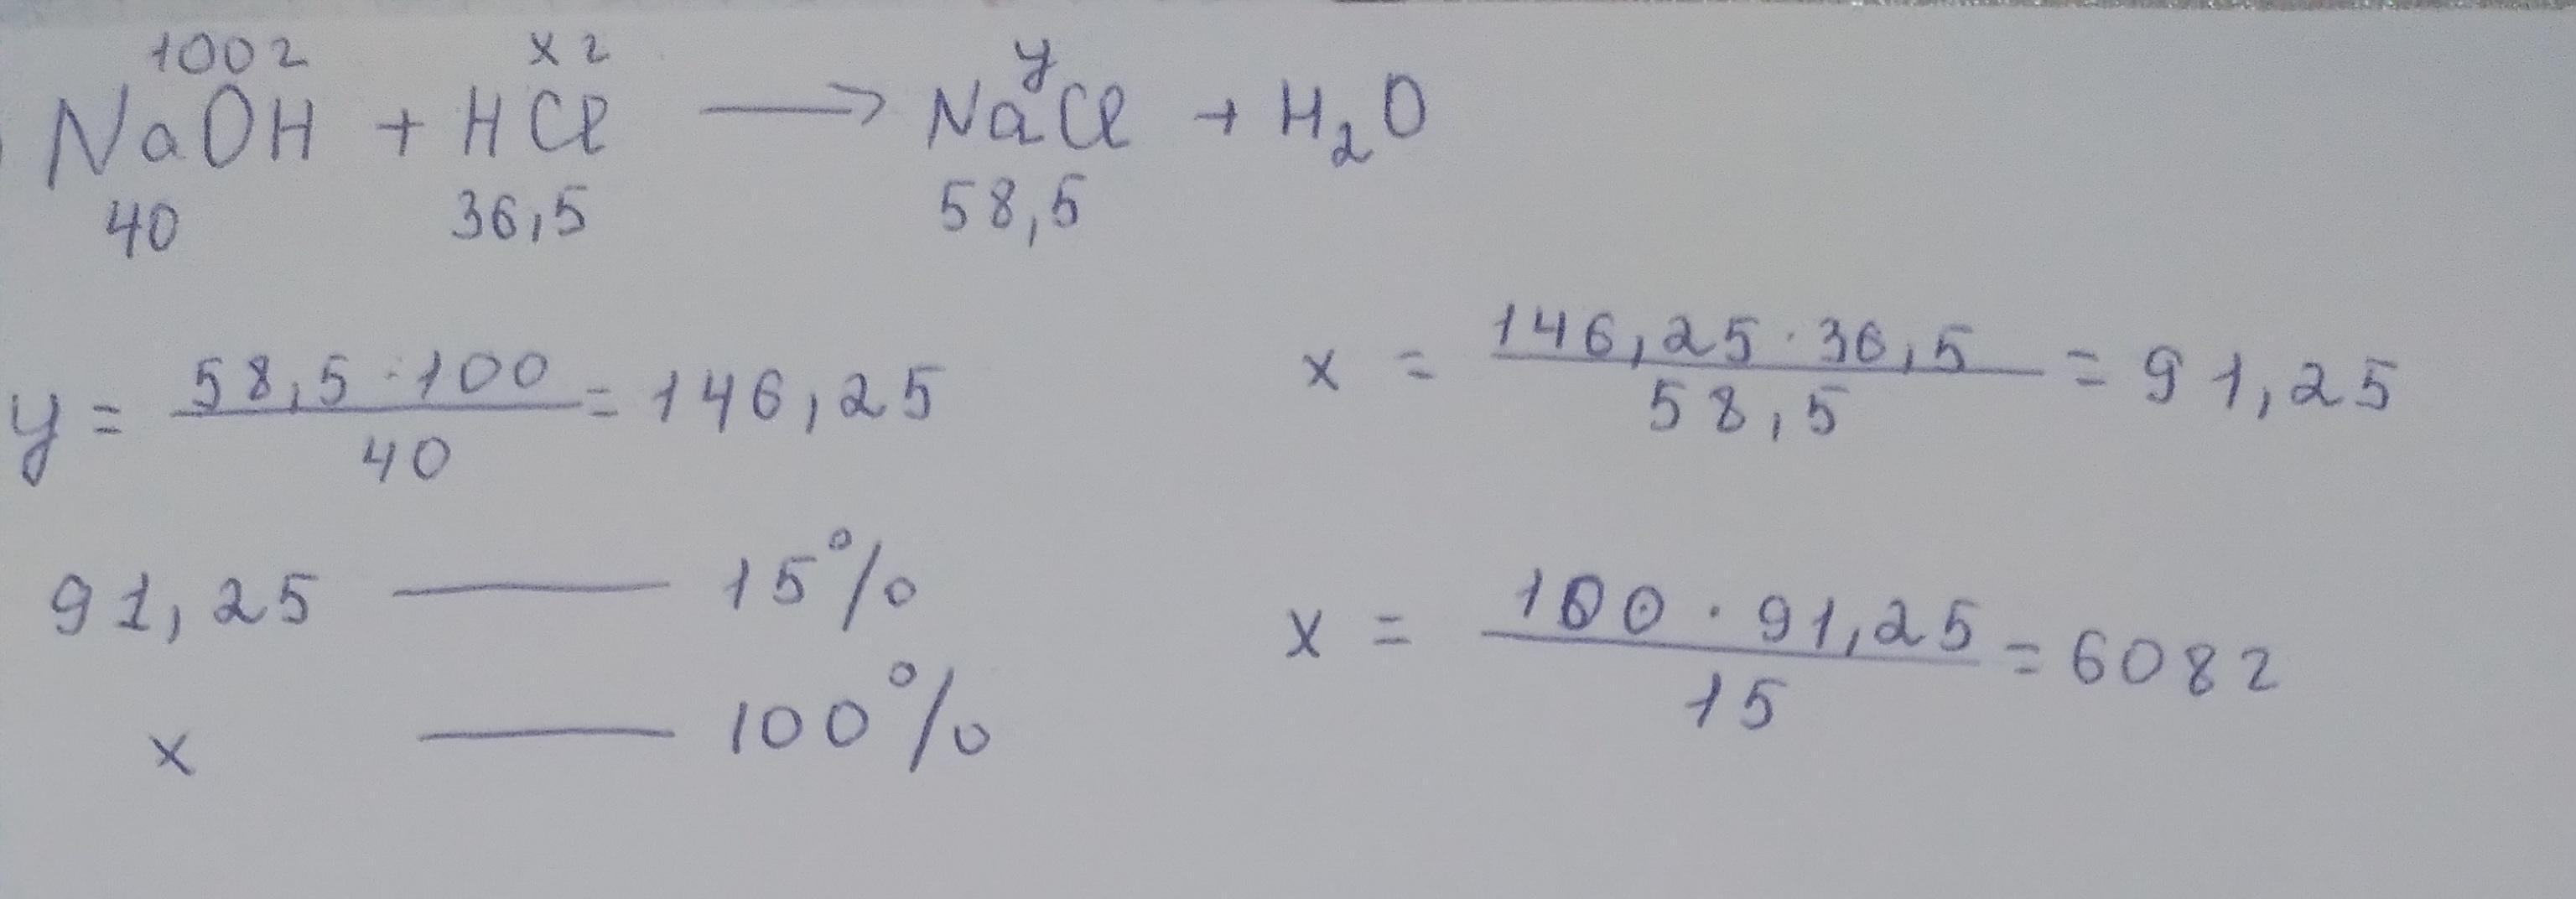 100г x г y
NaOH + HCl ⟶ NaCl + H₂O
40 36,5 58,5
y = 58,5 · 100 / 40 = 146,25
x = 146,25 · 36,5 / 58,5 = 91,25
91,25 — 15%
x — 100%
x = 100 · 91,25 / 15 = 608г